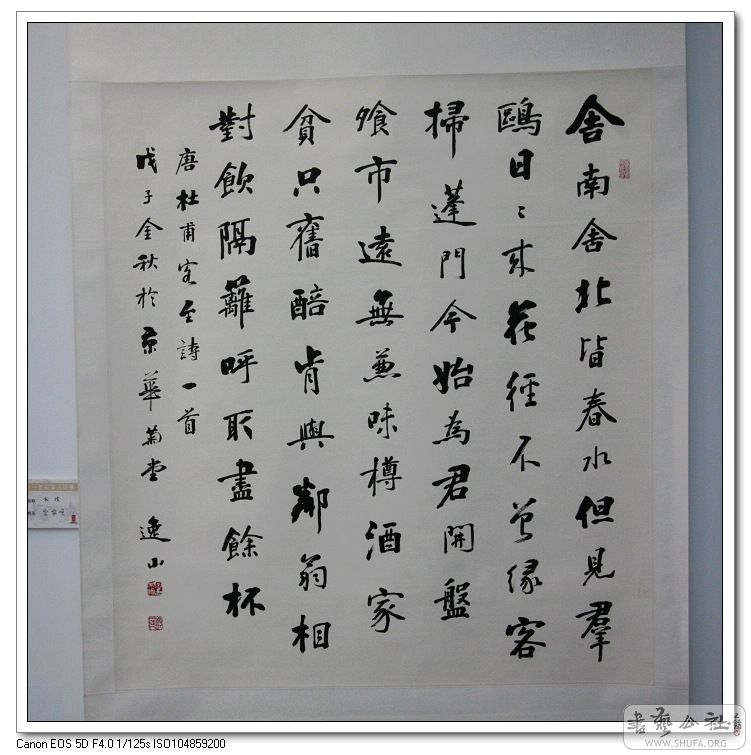 舍南舍北皆春水但見羣
鷗日〻来花徑不曾緣客
掃蓬門今始為君開盤
飧市遠無兼味樽酒家
貧只舊醅肯與鄰翁相
對飲隔籬呼取盡餘杯
唐杜甫客至詩一首
戊子金秋於京華菊堂 逸山
書藝公社
WWW.SHUFA.ORG
Canon EOS 5D F4.0 1/125s ISO104859200